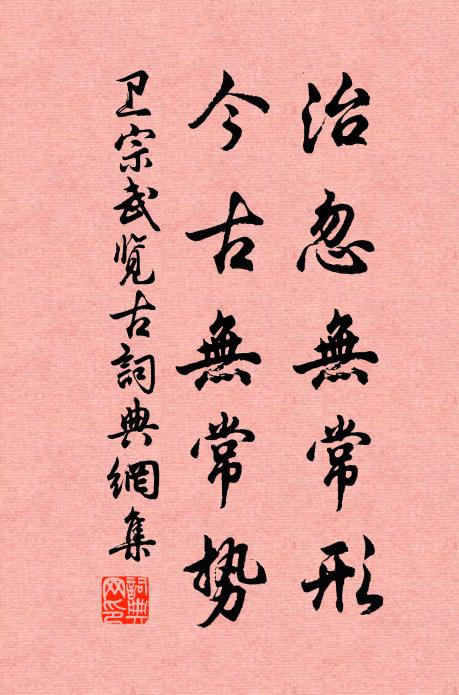 治忽無常形
今古無常势
卫宗武览古詞典網集
詞典网印